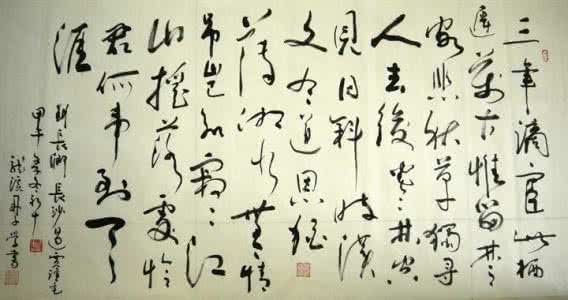 三年谪宦此栖
遲萬古惟留楚
客悲秋草獨尋
人去後寒林空
見日斜時漢
文有道恩猶
薄湘水無情
吊豈知寂寂江
山搖落處憐
君何事到天
涯
劉長卿長沙過賈誼宅
甲午年冬
學書